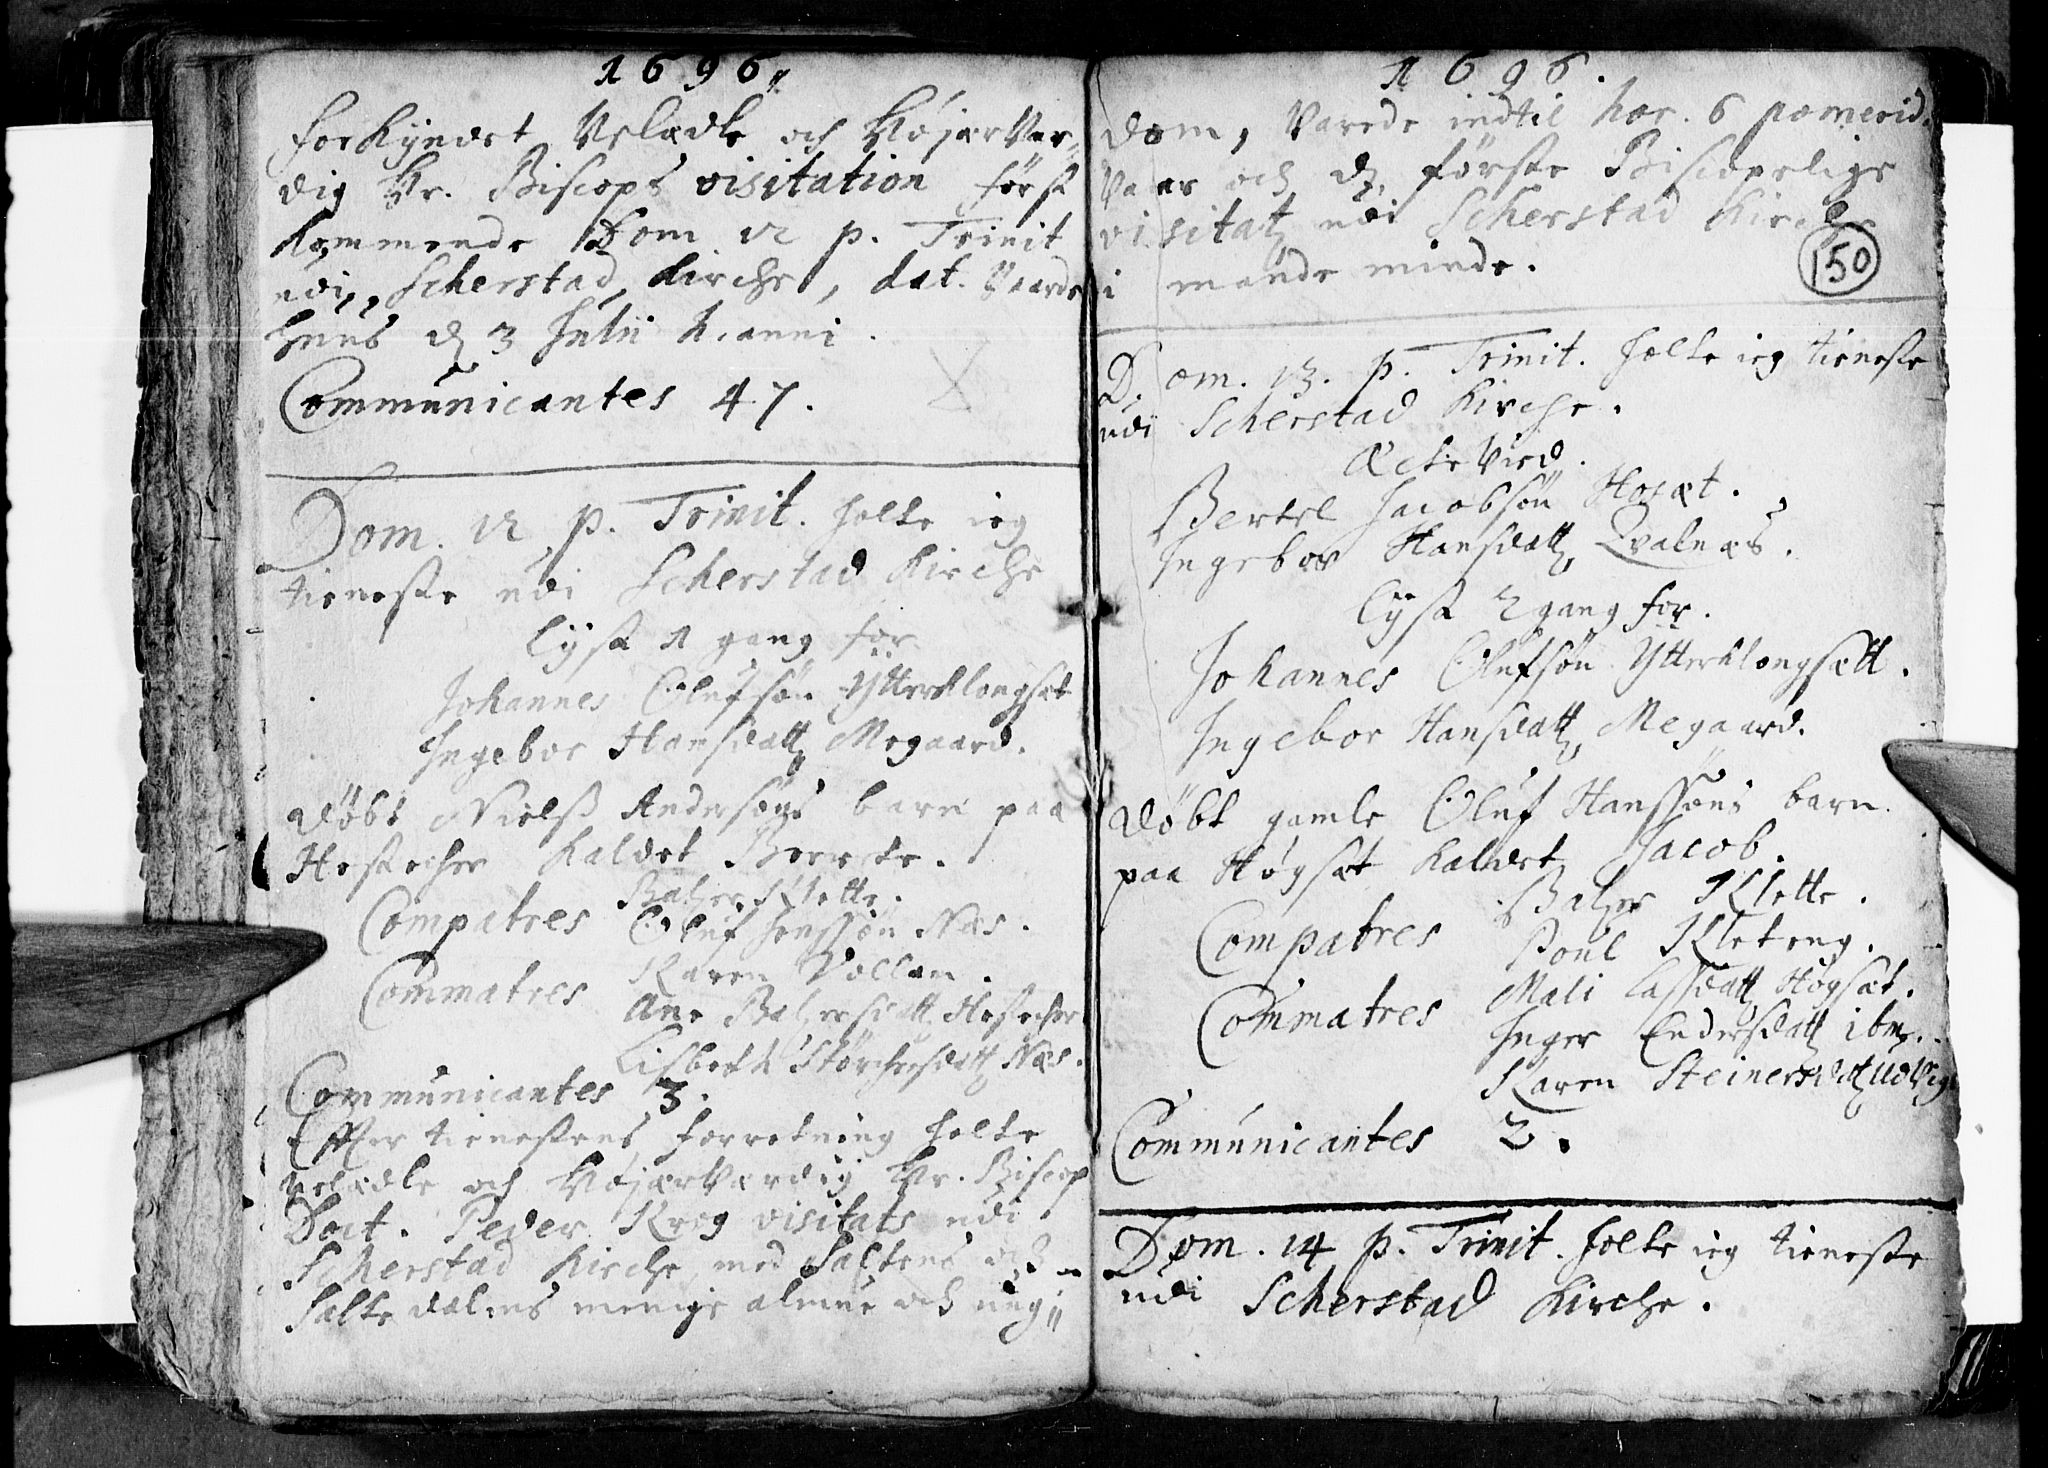 1696
forkyndet Velædle och Højærvær-
dig Hr. Biscops visitation først
kommende Dom 12 p. Trinit
udi Scherstad kirche, dat.
huus d 3 Julii h. anni.
Communicantes 47.
Dom. 12 p. Trinit. holte ieg
tieneste udi Scherstad kirche
lyst 1 gang for
Johannes Olufsøn Ytterklongset
Ingebor Hansdatt Megaard.
døbt Nielß Andersøns barn paa
kaldet
Compatres Balzer Klette.
Oluf Jenssøn Næs.
Commatres Karen Vollan.
Ane Balzersdatt
Lisbeth Størchersdatt Næs.
Communicantes 3.
Efter tienestens forretning holte
velædle och Højærværdig Hr. Biscop
Doct. Peder Krog visitats udi
Scherstad kirche, med Saltens och
Salte dalens menige almue och ung-
1696.
dom, varede indtil hor. 6 pomerid.
vaar och d første Biscopelige
visitatz udi Scherstad kirche
i mands minde.
150
Dom. 13. p. Trinit. holte ieg tieneste
udi Scherstad kirche.
Ectevied.
Bertel Jacobsøn
Ingebor Hansdatt, Qvalnæs.
lyst 2 gang for.
Johannes Olufsøn Ytterklongsætt.
Ingebor Hansdatt, Megaard.
døbt gamle Oluf Hanssøns barn.
paa Høgset kaldet Jacob.
Compatres Balzer Klette.
Poul Kleteng.
Commatres Mali Lassdatt Høgset.
Inger Endersdatt ibm.
Karen Steinersdatt
Communicantes 2.
Dom. 14 p. Trinit. holte ieg tieneste
udi Scherstad kirche.